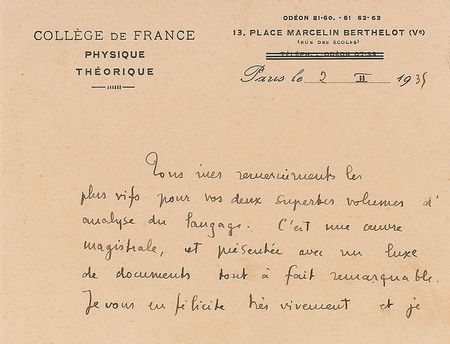 ODÉON 81-60. - 61 62-63
COLLÈGE DE FRANCE
PHYSIQUE
THÉORIQUE
13, PLACE MARCELIN BERTHELOT (Vᵉ)
(RUE DES ÉCOLES)
TÉLÉPH. : ODÉON
Paris le 2 II 1935
Tous mes remerciments les
plus vifs pour vos deux superbes volumes d'
analyse du langage. C'est une œuvre
magistrale, et présentée avec un luxe
de documents tout à fait remarquable.
Je vous en félicite très vivement et je